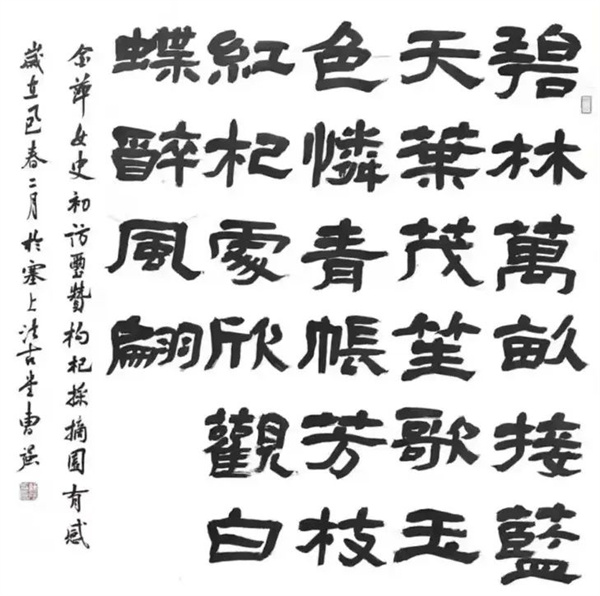 碧林萬畝接藍
天葉茂笙歌玉
色憐青帳芳枝
紅杞處欣觀白
蝶醉風翩
華女史初訪璽贊枸杞採摘園有感
歲在乙巳春二月於塞上法古堂曹强